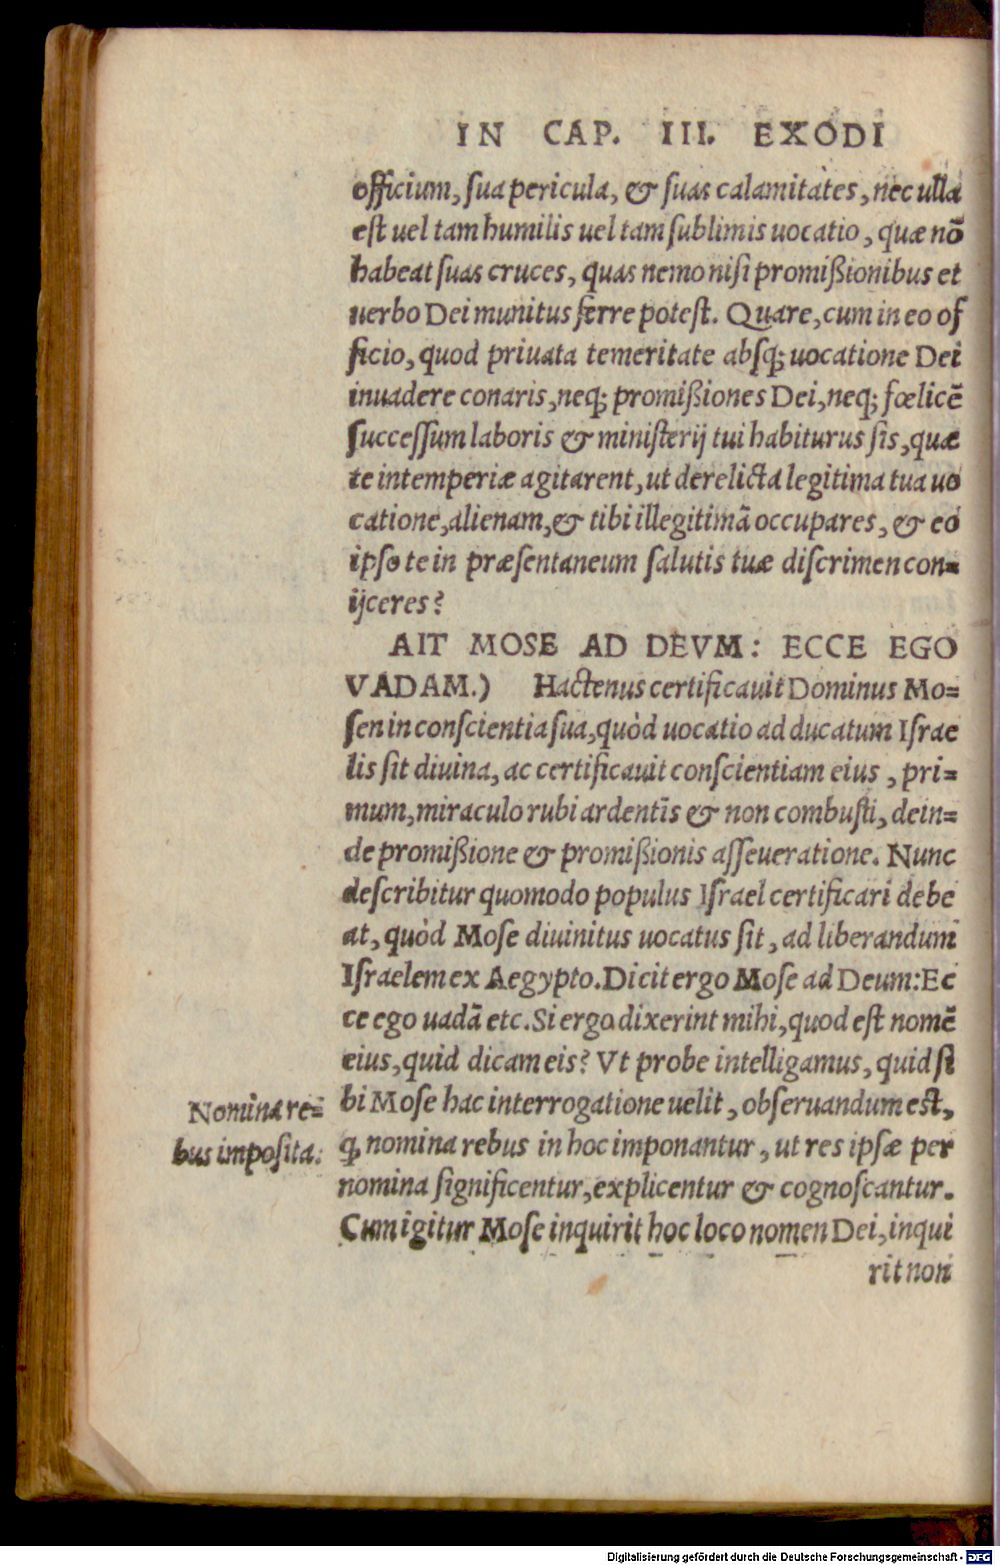 IN CAP. III. EXODI
officium, sua pericula, & suas calamitates, nec ulla
est uel tam humilis uel tam sublimis uocatio, quæ nõ
habeat suas cruces, quas nemo nisi promißionibus et
uerbo Dei munitus ferre potest. Quare, cum in eo of
ficio, quod priuata temeritate absq; uocatione Dei
inuadere conaris, neq; promißiones Dei, neq; fœlicẽ
successum laboris & ministerij tui habiturus sis, quæ
te intemperiæ agitarent, ut derelicta legitima tua uo
catione, alienam, & tibi illegitimã occupares, & eo
ipso te in præsentaneum salutis tuæ discrimen con=
ijceres?
AIT MOSE AD DEVM: ECCE EGO
VADAM.) Hactenus certificauit Dominus Mo=
sen in conscientia sua, quòd uocatio ad ducatum Israe
lis sit diuina, ac certificauit conscientiam eius, pri=
mum, miraculo rubi ardentis & non combusti, dein=
de promißione & promißionis asseueratione. Nunc
describitur quomodo populus Israel certificari debe
at, quòd Mose diuinitus uocatus sit, ad liberandum
Israelem ex Aegypto. Dicit ergo Mose ad Deum: Ec
ce ego uadã etc. Si ergo dixerint mihi, quod est nomẽ
eius, quid dicam eis? Vt probe intelligamus, quid si
bi Mose hac interrogatione uelit, obseruandum est,
ꝙ nomina rebus in hoc imponantur, ut res ipsæ per
nomina significentur, explicentur & cognoscantur.
Cum igitur Mose inquirit hoc loco nomen Dei, inqui
rit non
Nomina re=
bus imposita.
Digitalisierung gefördert durch die Deutsche Forschungsgemeinschaft - DFG